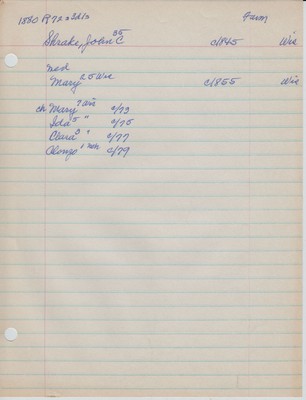 1880 P 72 Farm
Shrake, John C 35 c/1845 Wis
med
Mary 25 Wis c/1855 Wis
ch Mary 7 Wis c/73
Ida 5 " c/75
Clara 3 " c/77
Alonzo 1 c/79